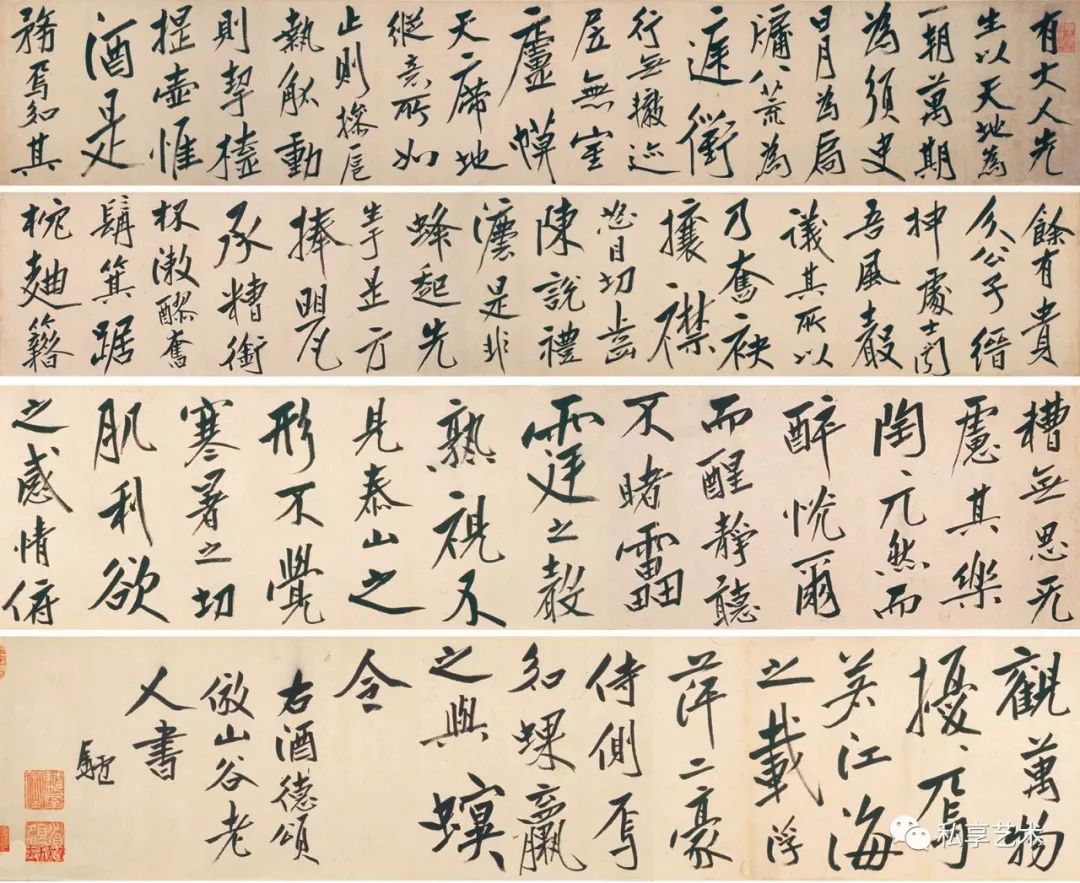 有大人先
生以天地為
一朝萬期
為須臾
日月為扃
牖八荒為
庭衢
行無轍迹
居無室
廬幙
天席地
縱意所如
止則操卮
執觚動
則挈榼
提壺惟
酒是
務焉知其
餘有貴
介公子縉
紳處士聞
吾風聲
議其所以
乃奮袂
攘襟
怒目切齒
陳說禮
灋是非
蜂起先
生於是方
捧罌
承糟銜
杯漱醪奮
髯箕踞
枕麯籍
槽無思无
慮其樂
陶々兀然而
醉怳爾
而醒靜聽
不睹雷
霆之聲
熟視不
見泰山之
形不覺
寒暑之切
肌利欲
之感情俯
觀萬物
擾々焉
若江海
之載浮
萍二豪
侍側焉
知蜾蠃
之與螟
令
右酒德頌
倣山谷老
人書
私享艺术